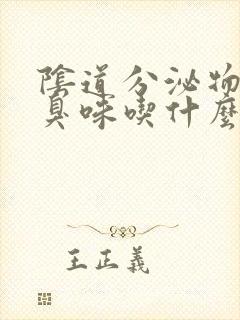 陰道分泌物
臭味喫什麼
王正義